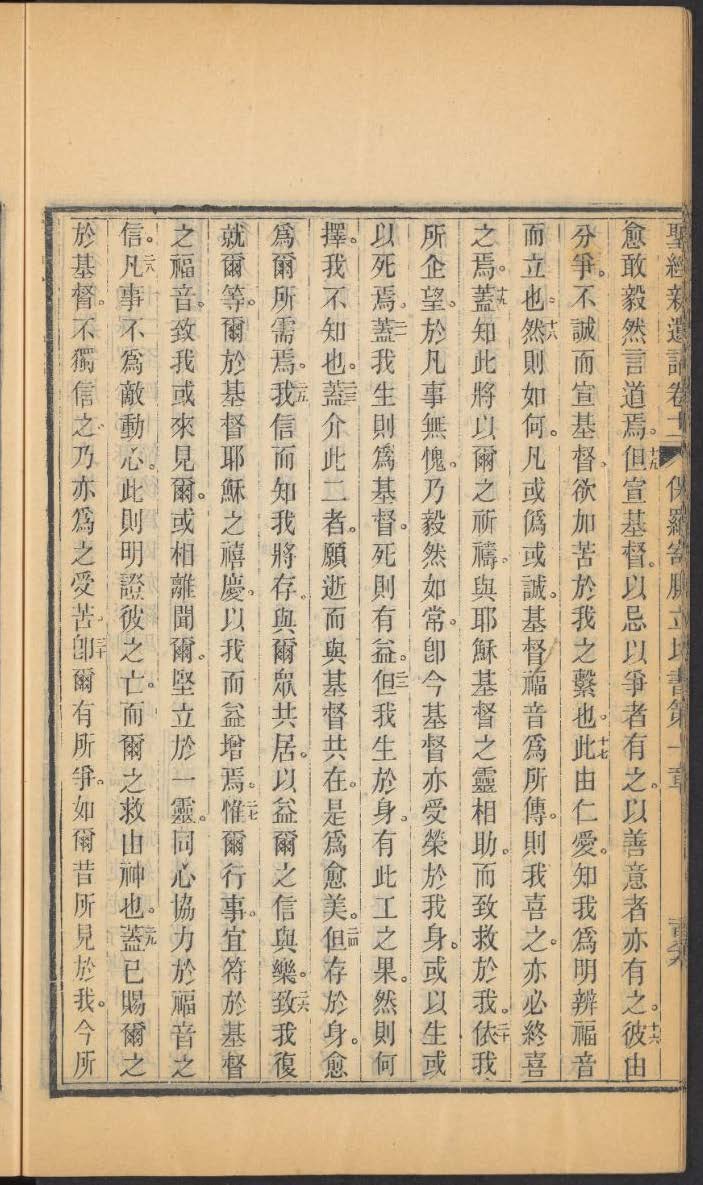 聖經新遺詔卷十一 保羅寄腓立比書第一章
愈敢毅然言道焉。十五但宣基督。以忌以爭者有之。以善意者亦有之。十六彼由
分爭。不誠而宣基督、欲加苦於我之繫也。十七此由仁愛。知我爲明辨福音
而立也。十八然則如何。凡或僞或誠。基督福音爲所傳。則我喜之。亦必終喜
之焉。十九蓋知此將以爾之祈禱、與耶穌基督之靈相助。而致救於我。二十依我
所企望。於凡事無愧。乃毅然如常。卽今基督亦受榮於我身。或以生或
以死焉。二一蓋我生則爲基督。死則有益。二二但我生於身。有此工之果。然則何
擇。我不知也。二三蓋介此二者。願逝而與基督共在。是爲愈美。二四但存於身。愈
爲爾所需焉。二五我信而知我將存。與爾眾共居。以益爾之信與樂。二六致我復
就爾等。爾於基督耶穌之禧慶。以我而益增焉。二七惟爾行事。宜符於基督
之福音。致我或來見爾。或相離聞爾。堅立於一靈。同心協力於福音之
信。二八凡事不爲敵動心。此則明證彼之亡。而爾之救由神也。二九蓋已賜爾之
於基督。不獨信之、乃亦爲之受苦。三十卽爾有所爭。如爾昔所見於我。今所